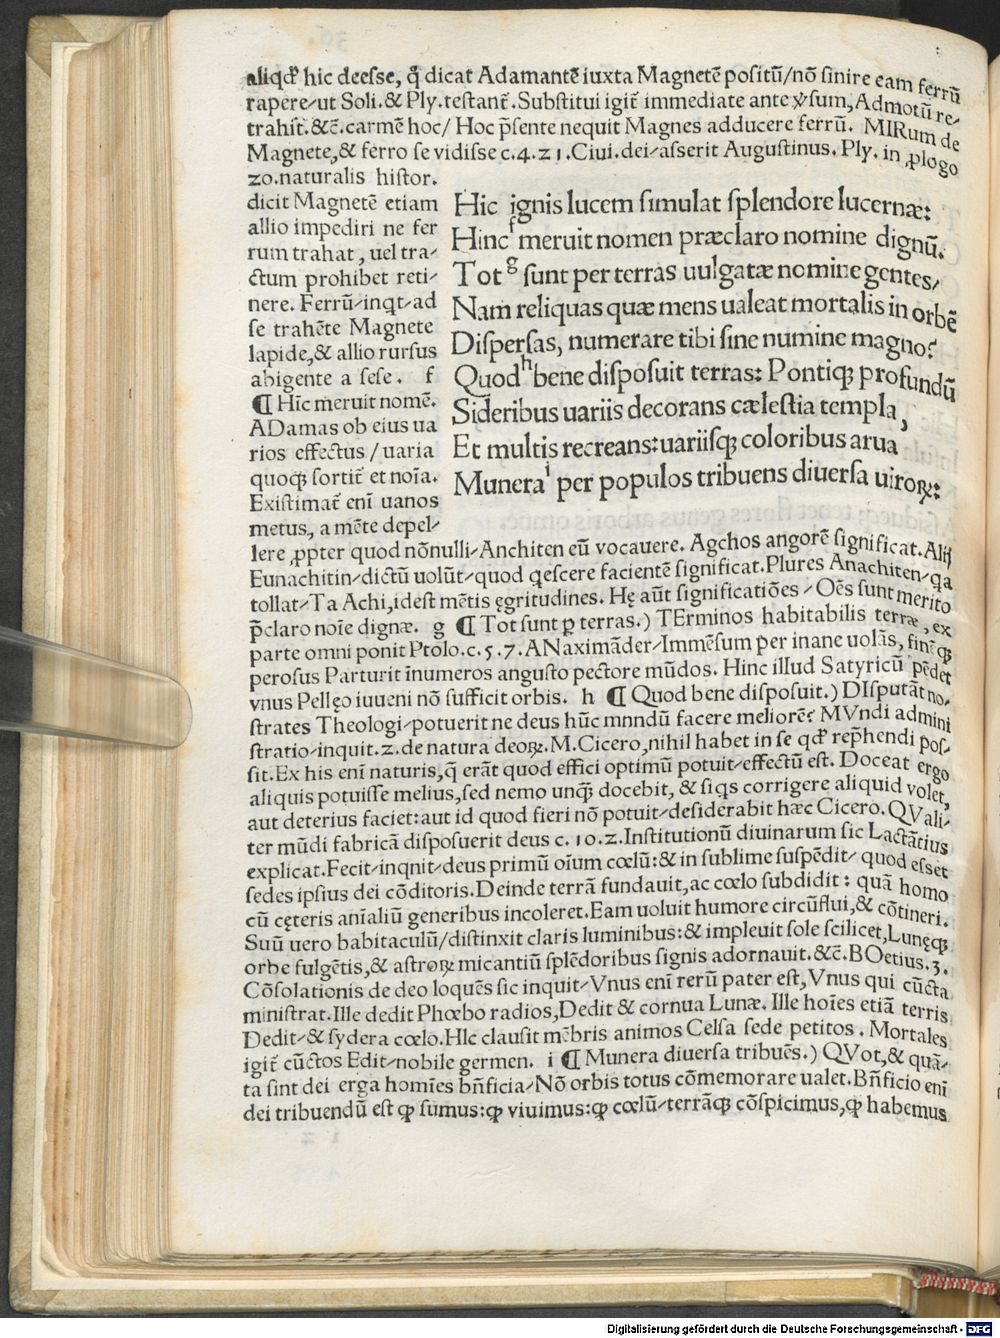 aliqd̕ hic deesse, q̄ dicat Adamantē iuxta Magnetē positū/nō sinire eam ferrū
rapere/ut Soli.& Ply.testant̃.Substitui igit̃ immediate ante v̕sum,Admotū re/
trahit̃.&c̄.carmē hoc/ Hoc p̄sente nequit Magnes adducere ferrū. MIRum de
Magnete,& ferro se vidisse c.4.21.Ciui.dei/asserit Augustinus. Ply. in ꝓlogo
zo.naturalis histor.
dicit Magnetē etiam
allio impediri ne fer
rum trahat, uel tra/
ctum prohibet reti/
nere. Ferrū/inqt/ad
se trahēte Magnete
lapide,& allio rursus
abigente a sese. f
¶ Hīc meruit nomē.
ADamas ob eius ua
rios effectus / uaria
quoqꝫ sortit̃ et noīa.
Existimat̃ enī uanos
metus, a mēte depel/
Hic ignis lucem simulat splendore lucernæ:
Hinc f meruit nomen præclaro nomine dignū.
Tot g sunt per terras uulgatæ nomine gentes/
Nam reliquas quæ mens ualeat mortalis in orbē
Dispersas, numerare tibi sine numine magno?
Quod h bene disposuit terras: Pontiqꝫ profundū
Sideribus uariis decorans cælestia templa,
Et multis recreans:uariisqꝫ coloribus arua
Munera i per populos tribuens diuersa uiroꝝ:
lere ꝓpter quod nōnulli/Anchiten eū vocauere. Agchos angorē significat.Alij
Eunachitin/dictū uolūt/quod qescere facientē significat.Plures Anachiten/qa
tollat/Ta Achi,idest mētis ęgritudines. Hę aūt significatiōes / Oēs sunt merito
p̄claro noīe dignæ. g ¶ Tot sunt ꝑ terras.) TErminos habitabilis terræ, ex
parte omni ponit Ptolo.c.5.7.ANaximāder/Immēsum per inane uolās, finēqꝫ
perosus Parturit īnumeros angusto pectore mūdos. Hinc illud Satyricū pēdet
vnus Pellęo iuueni nō sufficit orbis. h ¶ Quod bene disposuit.) DIsputāt no/
strates Theologi/potuerit ne deus hūc mnndū facere meliorē? MVndi admini
stratio/inquit.2.de natura deoꝝ.M.Cicero,nihil habet in se qd̕ rep̄hendi pos/
sit.Ex his enī naturis,q̄ erāt quod effici optimū potuit/effectū est. Doceat ergo
aliquis potuisse melius,sed nemo unqꝫ docebit, & siqs corrigere aliquid volet,
aut deterius faciet:aut id quod fieri nō potuit/desiderabit hæc Cicero. QVali/
ter mūdi fabricā disposuerit deus c.10.2.Institutionū diuinarum sic Lactātius
explicat.Fecit/inqnit/deus primū oīum cœlū:& in sublime suspēdit/ quod esset
sedes ipsius dei cōditoris.Deinde terrā fundauit,ac cœlo subdidit: quā homo
cū cęteris anīaliū generibus incoleret.Eam uoluit humore circūflui,& cōtineri.
Suū uero babitaculū/distinxit claris luminibus:& impleuit sole scilicet,Lunęqꝫ
orbe fulgētis,& astroꝝ micantiū splēdoribus signis adornauit.&c̄.BOetius.3.
Cōsolationis de deo loquēs sic inquit/Vnus enī rerū pater est,Vnus qui cūcta
ministrat.Ille dedit Phœbo radios,Dedit & cornua Lunæ. Ille hoīes etiā terris
Dedit/& sydera cœlo.HIc clausit mēbris animos Celsa sede petitos. Mortales
igit̃ cūctos Edit/nobile germen. i ¶ Munera diuersa tribuēs.) QVot,& quā/
ta sint dei erga homīes bn̄ficia/Nō orbis totus cōmemorare ualet.Bn̄ficio enī
dei tribuendū est ꝙ sumus:ꝙ viuimus:ꝙ cœlū/terrāqꝫ cōspicimus,ꝙ habemus
Digitalisierung gefördert durch die Deutsche Forschungsgemeinschaft - DFG